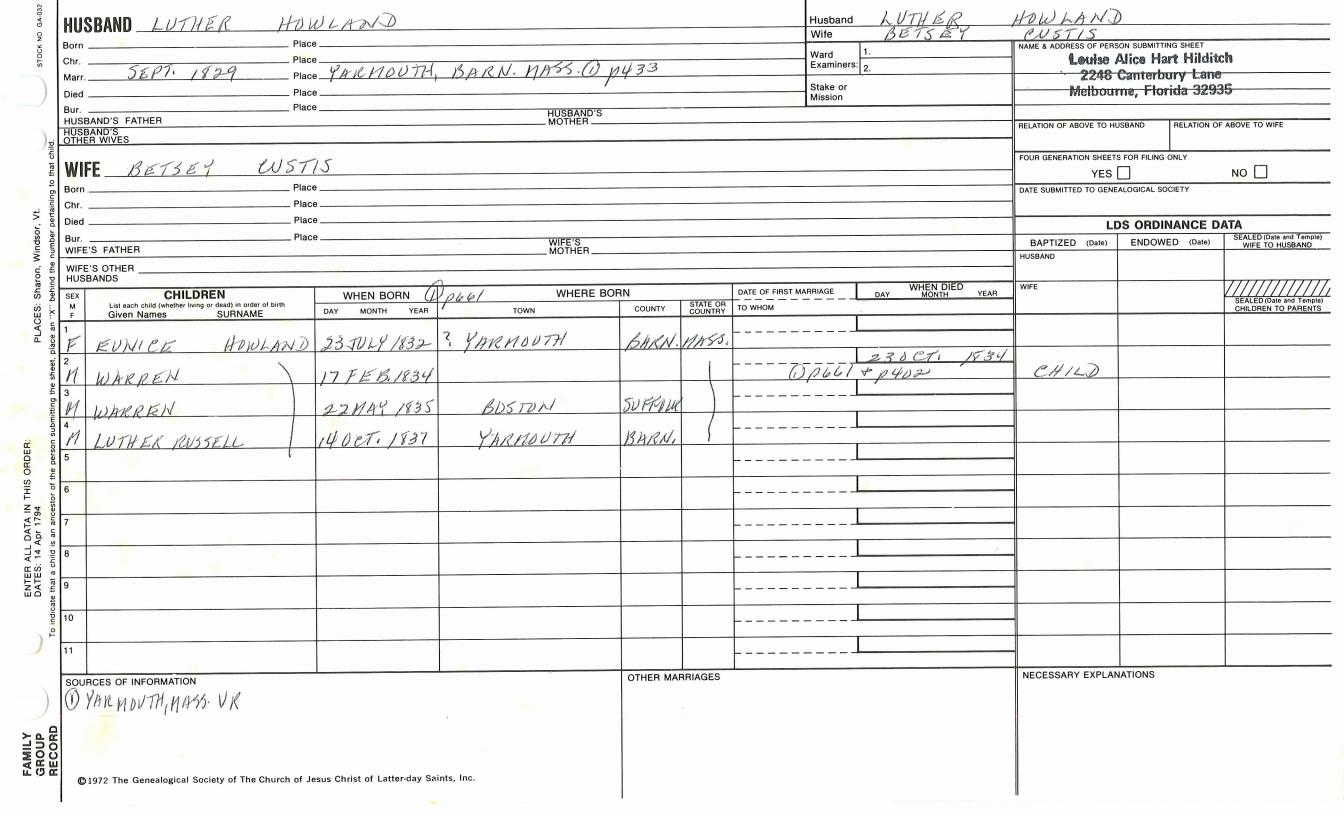 STOCK NO. GA-032
HUSBAND LUTHER HOWLAND
Born Place
Chr. Place
Marr. SEPT. 1829 Place YARMOUTH, BARN. MASS. ① p433
Died Place
Bur. Place
HUSBAND'S FATHER HUSBAND'S MOTHER
HUSBAND'S OTHER WIVES
Husband LUTHER HOWLAND
Wife BETSEY CUSTIS
Ward Examiners: 1.
2.
Stake or Mission
NAME & ADDRESS OF PERSON SUBMITTING SHEET
Louise Alice Hart Hilditch
2248 Canterbury Lane
Melbourne, Florida 32935
RELATION OF ABOVE TO HUSBAND RELATION OF ABOVE TO WIFE
FOUR GENERATION SHEETS FOR FILING ONLY
YES NO
DATE SUBMITTED TO GENEALOGICAL SOCIETY
WIFE BETSEY CUSTIS
Born Place
Chr. Place
Died Place
Bur. Place
WIFE'S FATHER WIFE'S MOTHER
WIFE'S OTHER HUSBANDS
LDS ORDINANCE DATA
BAPTIZED (Date) ENDOWED (Date) SEALED (Date and Temple) WIFE TO HUSBAND
HUSBAND
WIFE
SEALED (Date and Temple) CHILDREN TO PARENTS
SEX M F
CHILDREN
List each child (whether living or dead) in order of birth
Given Names SURNAME
WHEN BORN ① p661 WHERE BORN
DAY MONTH YEAR TOWN COUNTY STATE OR COUNTRY
DATE OF FIRST MARRIAGE
TO WHOM
WHEN DIED
DAY MONTH YEAR
1 F EUNICE HOWLAND 23 JULY 1832 ? YARMOUTH BARN. MASS.
2 M WARREN 17 FEB. 1834 23 OCT. 1834
① p661 + p402 CHILD
3 M WARREN 22 MAY 1835 BOSTON SUFFOLK
4 M LUTHER RUSSELL 14 OCT. 1837 YARMOUTH BARN.
5
6
7
8
9
10
11
SOURCES OF INFORMATION
① YARMOUTH, MASS. VR
OTHER MARRIAGES
NECESSARY EXPLANATIONS
©1972 The Genealogical Society of The Church of Jesus Christ of Latter-day Saints, Inc.
FAMILY
GROUP
RECORD
ENTER ALL DATA IN THIS ORDER:
DATES: 14 Apr 1794 PLACES: Sharon, Windsor, Vt.
To indicate that a child is an ancestor of the person submitting the sheet, place an "X" behind the number pertaining to that child.